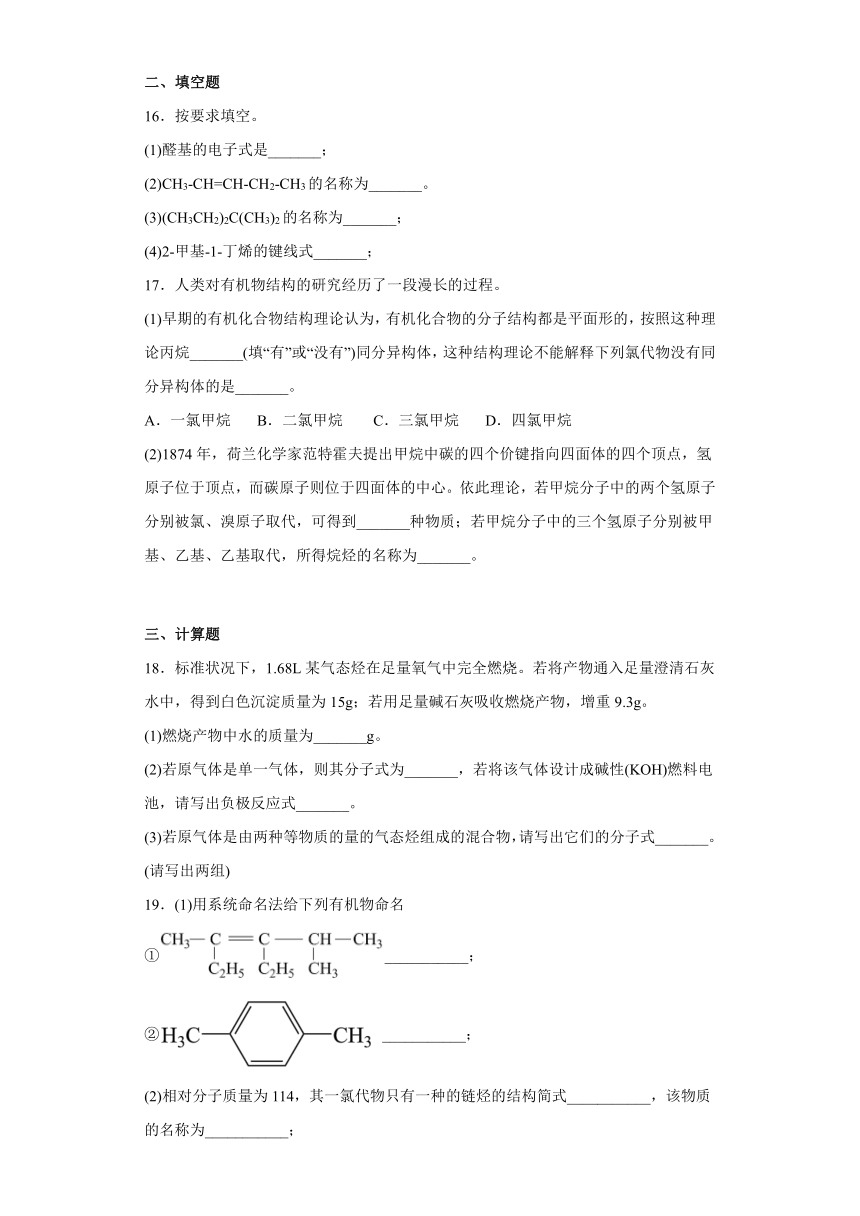 二、填空题
16．按要求填空。
(1)醛基的电子式是_______；
(2)CH₃-CH=CH-CH₂-CH₃的名称为_______。
(3)(CH₃CH₂)₂C(CH₃)₂的名称为_______；
(4)2-甲基-1-丁烯的键线式_______；
17．人类对有机物结构的研究经历了一段漫长的过程。
(1)早期的有机化合物结构理论认为，有机化合物的分子结构都是平面形的，按照这种理
论丙烷_______(填“有”或“没有”)同分异构体，这种结构理论不能解释下列氯代物没有同
分异构体的是_______。
A．一氯甲烷 B．二氯甲烷 C．三氯甲烷 D．四氯甲烷
(2)1874年，荷兰化学家范特霍夫提出甲烷中碳的四个价键指向四面体的四个顶点，氢
原子位于顶点，而碳原子则位于四面体的中心。依此理论，若甲烷分子中的两个氢原子
分别被氯、溴原子取代，可得到_______种物质；若甲烷分子中的三个氢原子分别被甲
基、乙基、乙基取代，所得烷烃的名称为_______。
三、计算题
18．标准状况下，1.68L某气态烃在足量氧气中完全燃烧。若将产物通入足量澄清石灰
水中，得到白色沉淀质量为15g；若用足量碱石灰吸收燃烧产物，增重9.3g。
(1)燃烧产物中水的质量为_______g。
(2)若原气体是单一气体，则其分子式为_______，若将该气体设计成碱性(KOH)燃料电
池，请写出负极反应式_______。
(3)若原气体是由两种等物质的量的气态烃组成的混合物,请写出它们的分子式_______。
(请写出两组)
19．(1)用系统命名法给下列有机物命名
CH₃—C═C—CH—CH₃
①___________；
C₂H₅ C₂H₅ CH₃
②H₃C CH₃ ___________；
(2)相对分子质量为114，其一氯代物只有一种的链烃的结构简式___________，该物质
的名称为___________；